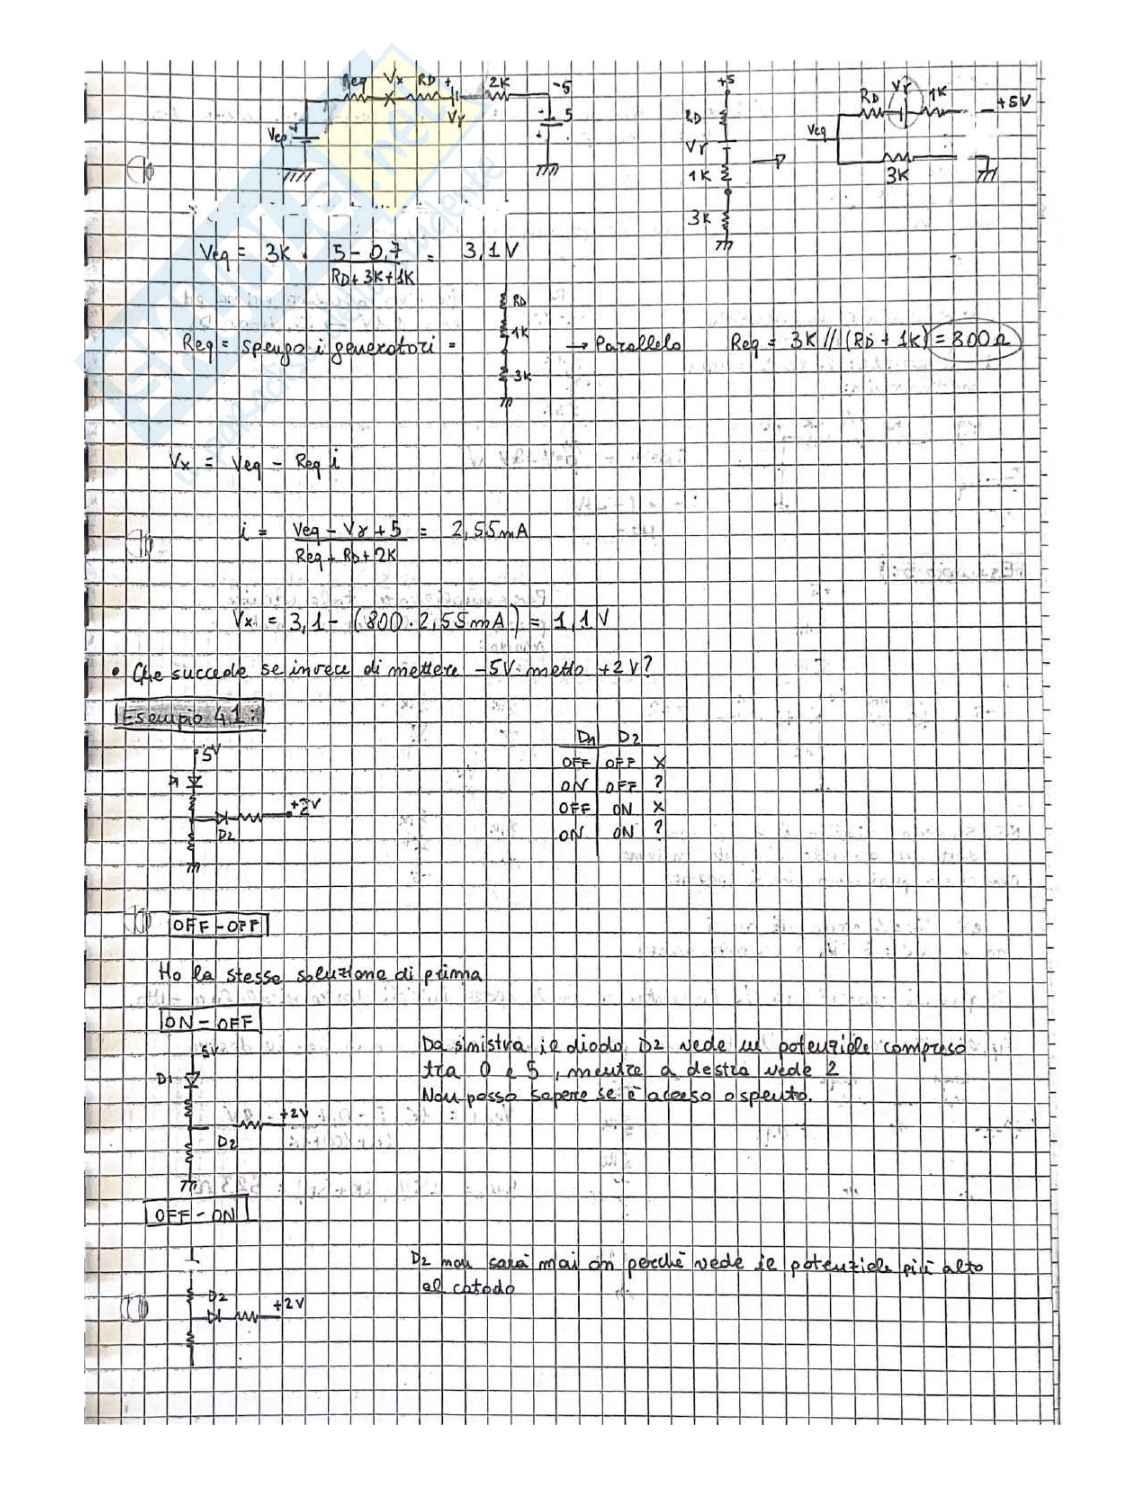 Req Vx RD + 2K -5
Veq + Vγ - 5 +
+5
RD
Vγ
1K
3K
Veq RD Vγ 1K +5V
3K
Veq = 3K · 5 - 0,7 / RD + 3K + 1K = 3,1V
Req = spengo i generatori =
RD
1K
3K
→ Parallelo Req = 3K // (RD + 1K) = 800Ω
Vx = Veq - Req i
i = Veq - Vγ + 5 / Req + RD + 2K = 2,55mA
Vx = 3,1 - (800 · 2,55mA) = 1,1V
• Che succede se invece di mettere -5V metto +2V?
Esempio 4.1:
5V
+2V
D2
D1 D2
OFF OFF X
ON OFF ?
OFF ON X
ON ON ?
OFF - OFF
Ho la stessa soluzione di prima
ON - OFF
5V
D1
+2V
D2
Da sinistra il diodo D2 vede un potenziale compreso
tra 0 e 5, mentre a destra vede 2
Non posso sapere se è acceso o spento.
OFF - ON
D2
+2V
D2 non sarà mai on perché vede il potenziale più alto
al catodo